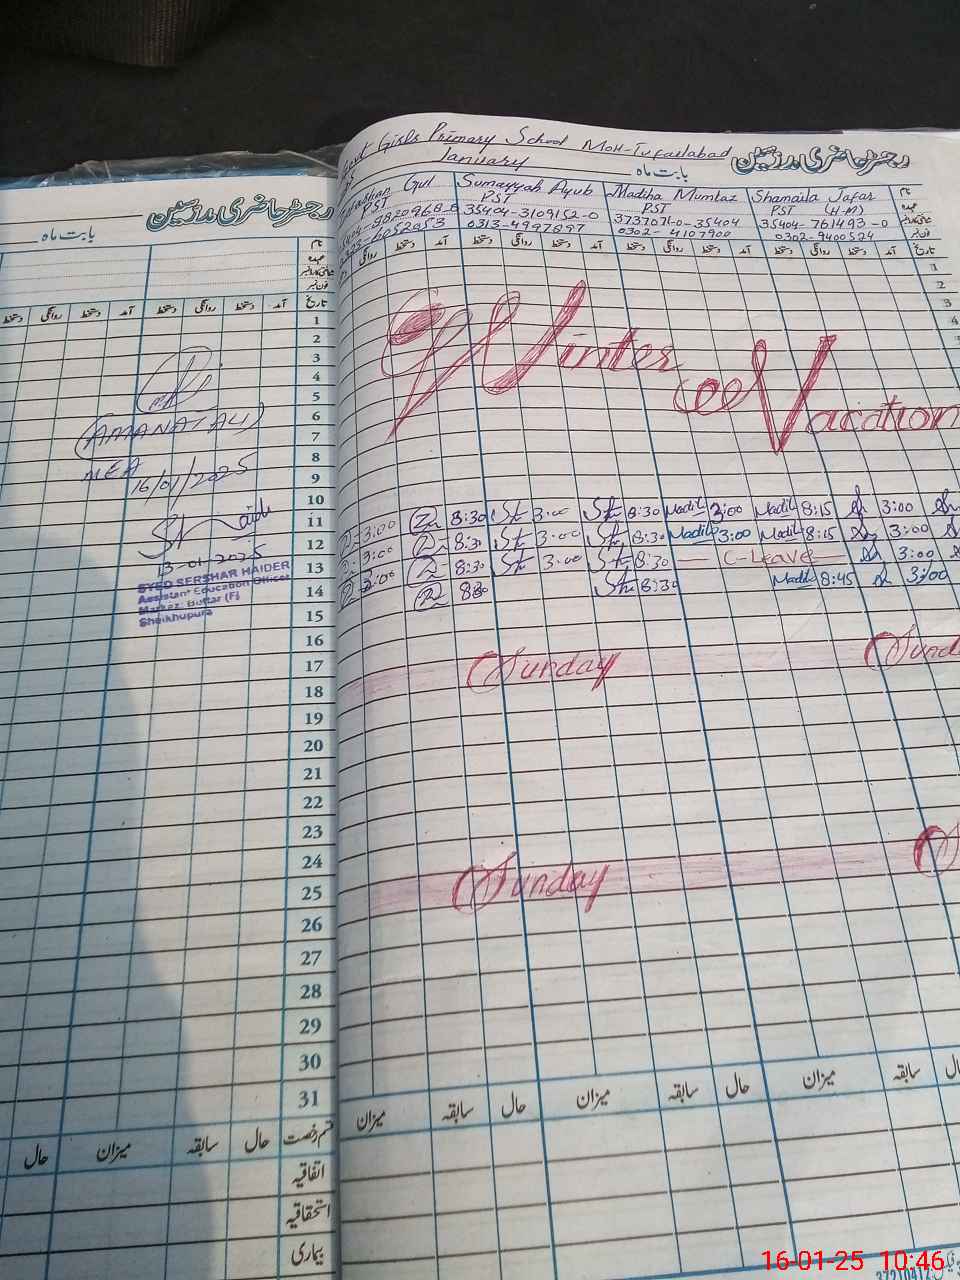 رجسٹر حاضری مدرسین
بابت ماہ
نام
عہدہ
شناختی کارڈ نمبر
فون نمبر
تاریخ آمد دستخط روانگی دستخط آمد دستخط روانگی دستخط
1
2
3
4
5
6
7
8
9
10
11
12
13
14
15
16
17
18
19
20
21
22
23
24
25
26
27
28
29
30
31
(AMANAT ALI)
MEA
16/01/2025
13-01-2025
SYED SERSHAR HAIDER
Assistant Education Officer
Markaz: Buttar (F)
Sheikhupura
قسم رخصت حال سابقہ میزان حال
اتفاقیہ
استحقاقیہ
بیماری
Govt Girls Primary School Moh-Tufailabad
رجسٹر حاضری مدرسین
January
بابت ماہ
Gul Sumayyah Ayub Madiha Mumtaz Shamaila Jafar نام
PST PST PST PST (H-M) عہدہ
35404-3109152-0 3737071-0-35404 35404-761493-0
0313-4997897 0302-4107900 0302-9400524 فون نمبر
روانگی دستخط آمد دستخط روانگی دستخط آمد دستخط روانگی دستخط آمد دستخط روانگی دستخط آمد تاریخ
1
2
3
4
Winter
Vacation
3:00 8:30 3:00 8:30 Madil 3:00 Madil 8:15 3:00
3:00 8:30 3:00 8:30 Madil 3:00 Madil 8:15 3:00
3:00 8:30 3:00 8:30 C-Leave 3:00
8:30 8:30 Madil 8:45 3:00
Sunday Sund
Sunday
میزان سابقہ حال میزان سابقہ حال میزان سابقہ حال
16-01-25 10:46